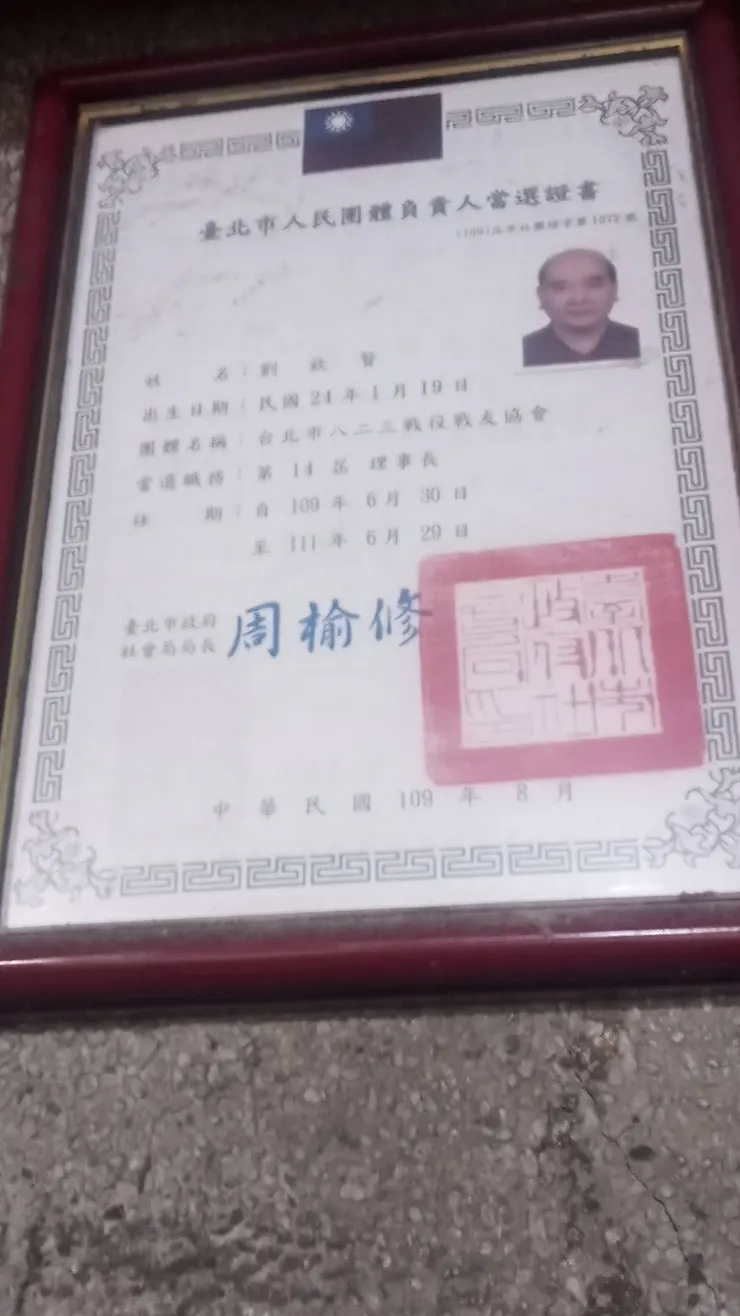 臺北市人民團體負責人當選證書
姓 名：劉 欽 賢
出生日期：民國 24 年 1 月 19 日
團體名稱：台北市八二三戰役戰友協會
當選職務：第 14 屆 理事長
任 期：自 109 年 6 月 30 日
至 111 年 6 月 29 日
臺北市政府
社會局局長 周榆修
中 華 民 國 109 年 8 月